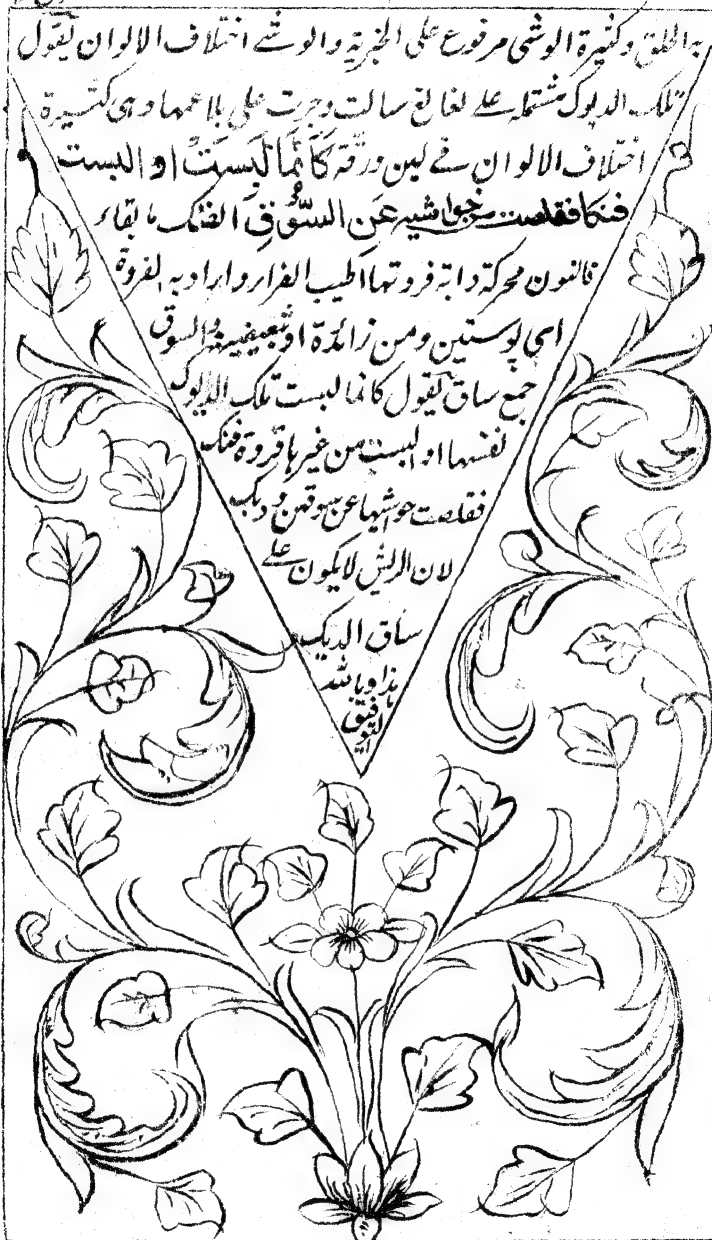 به الحلق وكثيرة الوشى مرفوع على الخبرية والوشے اختلاف الالوان يقول
تلك الديوك مشتملة علے لغالغ سالت وجرت على بلاعمها وهى كثيرة
اختلاف الالوان فے لين ورقة كَأَنَّمَا لَبِسَتْ او البست
فنكا فقلصت من حواشيه عَنِ السُّوْقِ الفنك ما يقاء
قانون محركة دابة فروتها اطيب الفراء واراد به الفروة
اى پوستين ومن زائدة او تبعيضية والسوق
جمع ساق يقول كانما لبست تلك الديوك
نفسها او البست من غيرها فروة فنك
فقلصت حواشيها عن سوقهن وذلك
لان الريش لا يكون علے
ساق الديك
هذا وبالله
التوفيق